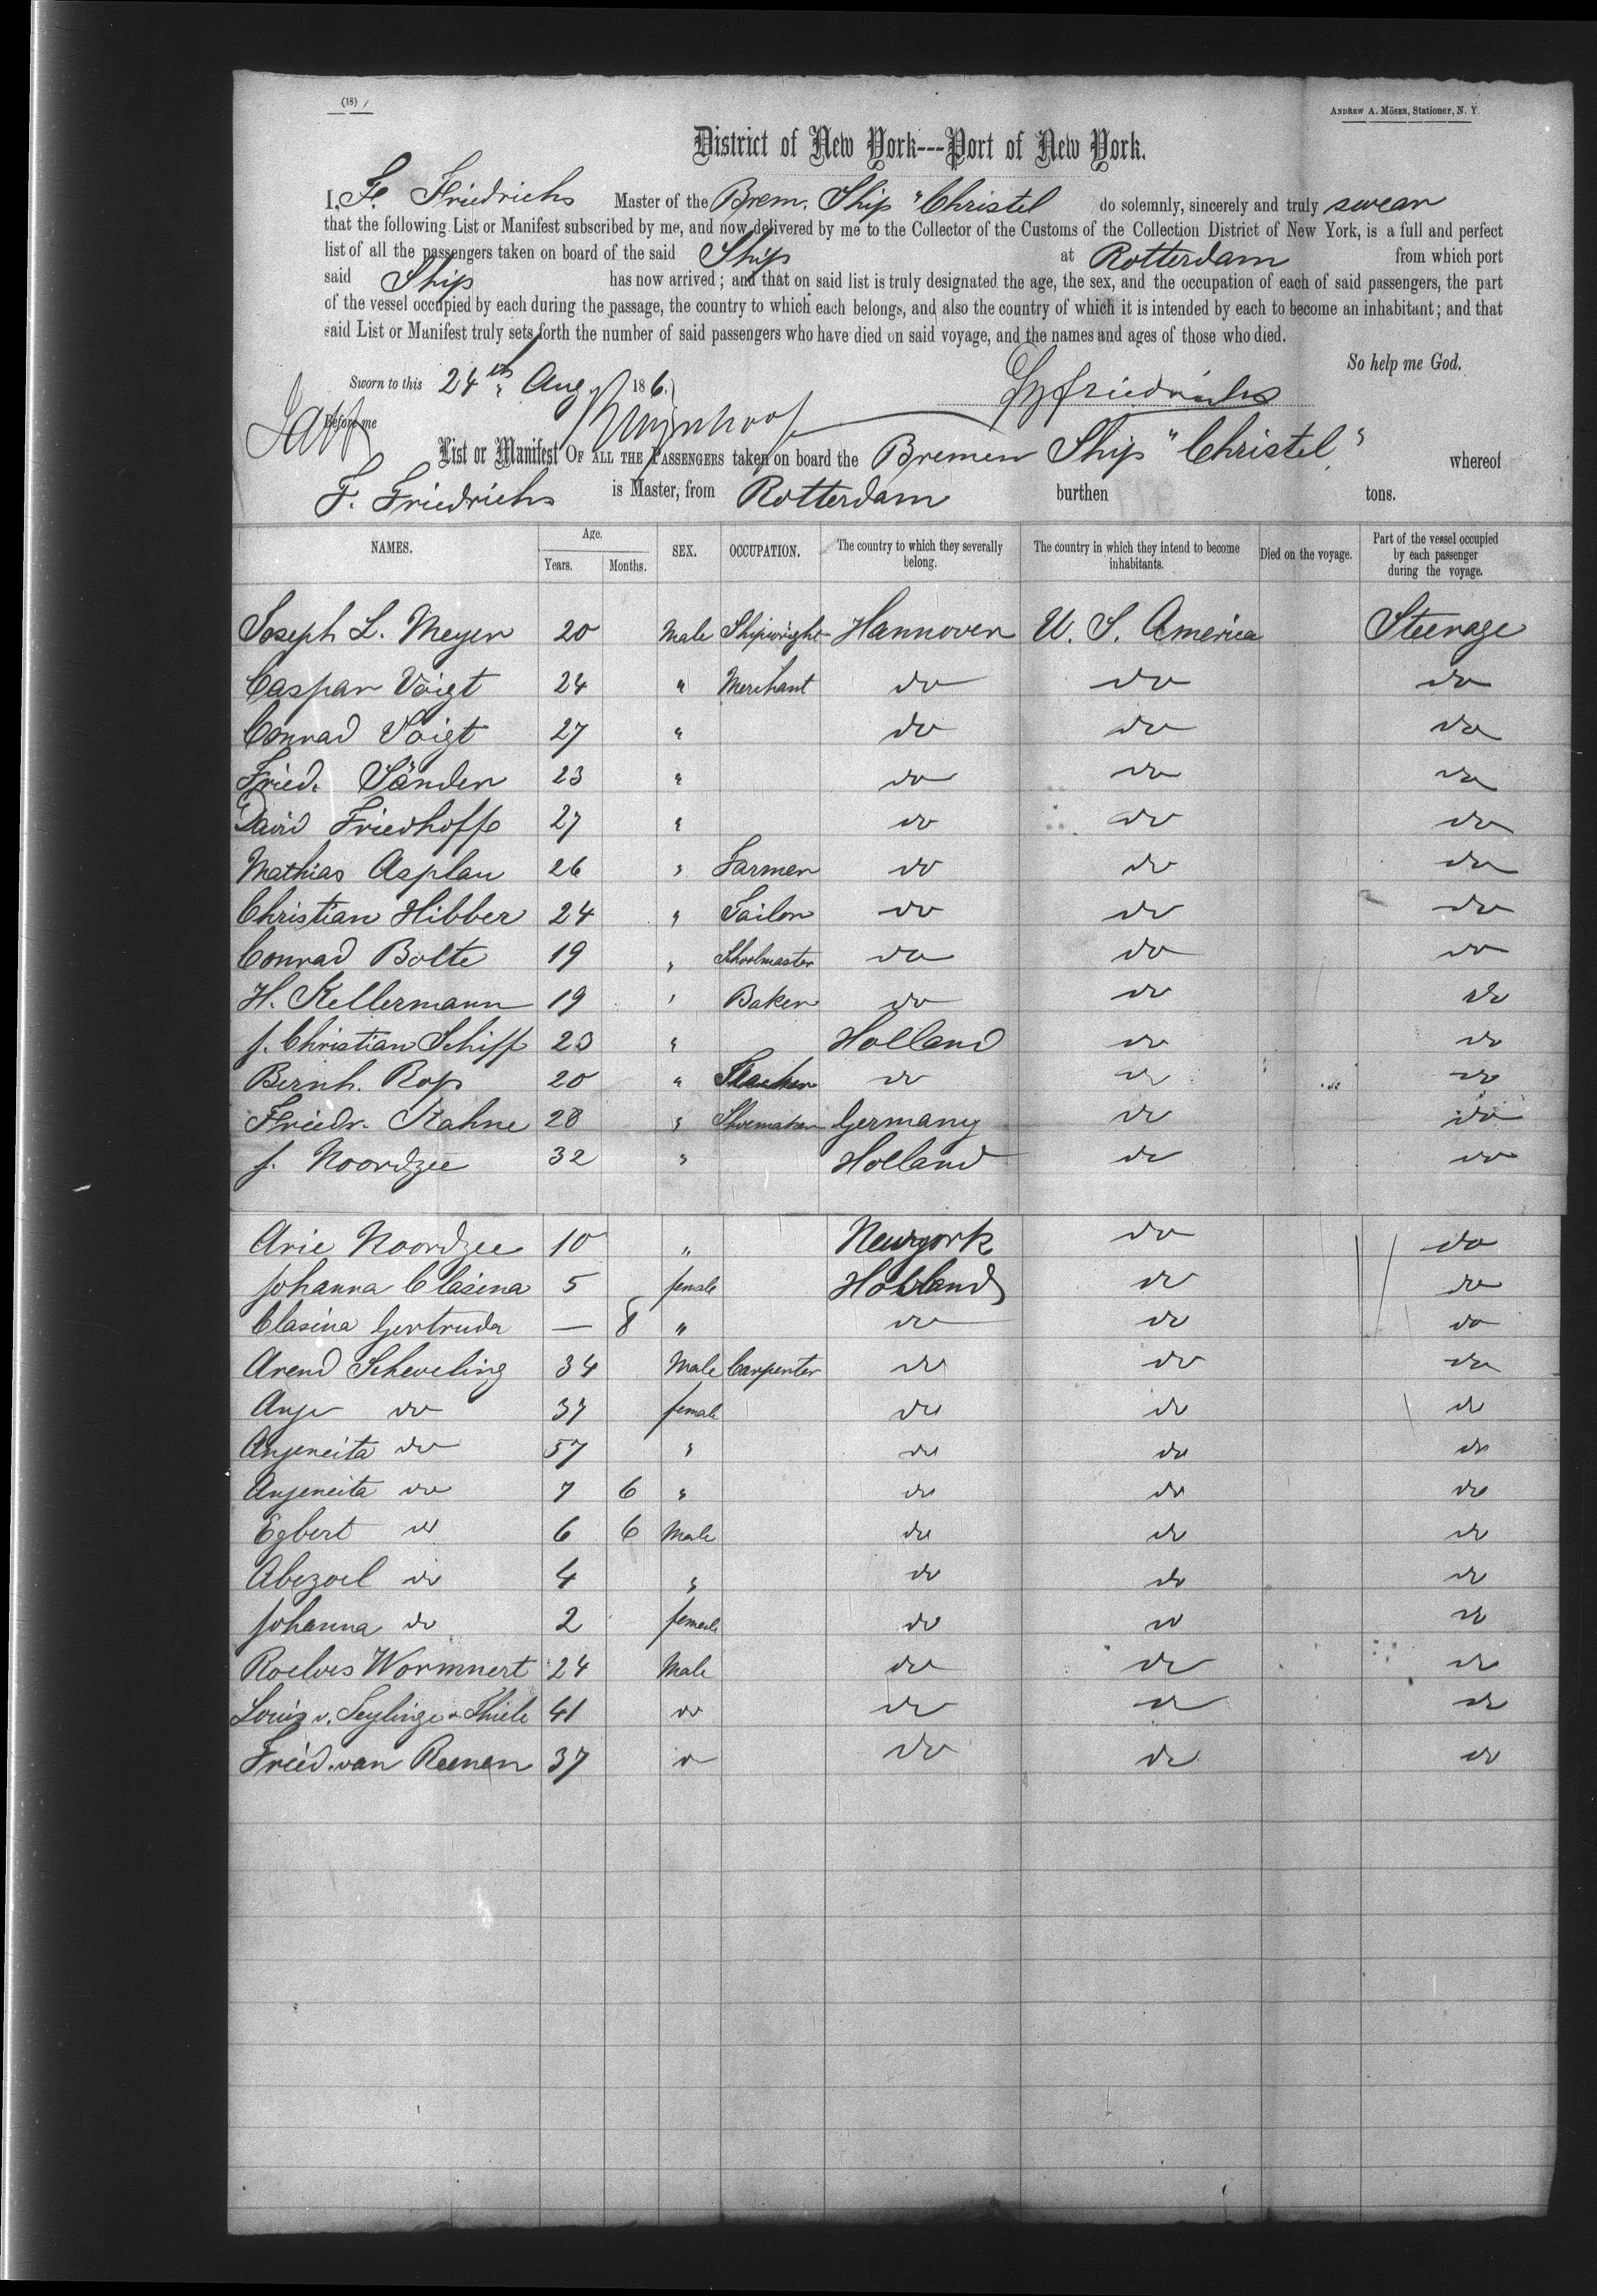 (18)
ANDREW A. MÖSER, Stationer, N. Y.
District of New York---Port of New York.
I, F. Friedrichs Master of the Brem. Ship "Christel do solemnly, sincerely and truly swear
that the following List or Manifest subscribed by me, and now delivered by me to the Collector of the Customs of the Collection District of New York, is a full and perfect
list of all the passengers taken on board of the said Ship at Rotterdam from which port
said Ship has now arrived; and that on said list is truly designated the age, the sex, and the occupation of each of said passengers, the part
of the vessel occupied by each during the passage, the country to which each belongs, and also the country of which it is intended by each to become an inhabitant; and that
said List or Manifest truly sets forth the number of said passengers who have died on said voyage, and the names and ages of those who died.
So help me God.
Sworn to this 24th Aug 186
Friedrichs
Before me
List or Manifest OF ALL THE PASSENGERS taken on board the Bremen Ship "Christel" whereof
F. Friedrichs is Master, from Rotterdam burthen tons.
NAMES. Age. Years. Months. SEX. OCCUPATION. The country to which they severally belong. The country in which they intend to become inhabitants. Died on the voyage. Part of the vessel occupied by each passenger during the voyage.
Joseph L. Meyer 20 Male Shipwright Hannover U. S. America Steerage
Caspar Voigt 24 " Merchant do do do
Conrad Voigt 27 " do do do
Fried. Sänder 23 " do do do
David Friedhoff 27 " do do do
Mathias Asplan 26 " Farmer do do do
Christian Hibber 24 " Tailor do do do
Conrad Bolte 19 " Schoolmaster do do do
H. Kellermann 19 " Baker do do do
J. Christian Schiff 23 " Holland do do
Bernh. Rop 20 " do do do
Friedr. Kahne 28 " Shoemaker Germany do do
J. Noordzee 32 " Holland do do
Arie Noordzee 10 " Newyork do do
Johanna Clasina 5 female Holland do do
Clasina Gertruda — 8 " do do do
Arend Scheveling 34 Male Carpenter do do do
Anje do 37 female do do do
Anjeneita do 57 " do do do
Anjeneita do 7 6 " do do do
Egbert do 6 6 Male do do do
Abezoel do 4 " do do do
Johanna do 2 female do do do
Roelves Wormnert 24 Male do do do
Louis v. Seylinge Thiele 41 do do do do
Fried. van Reenen 37 do do do do